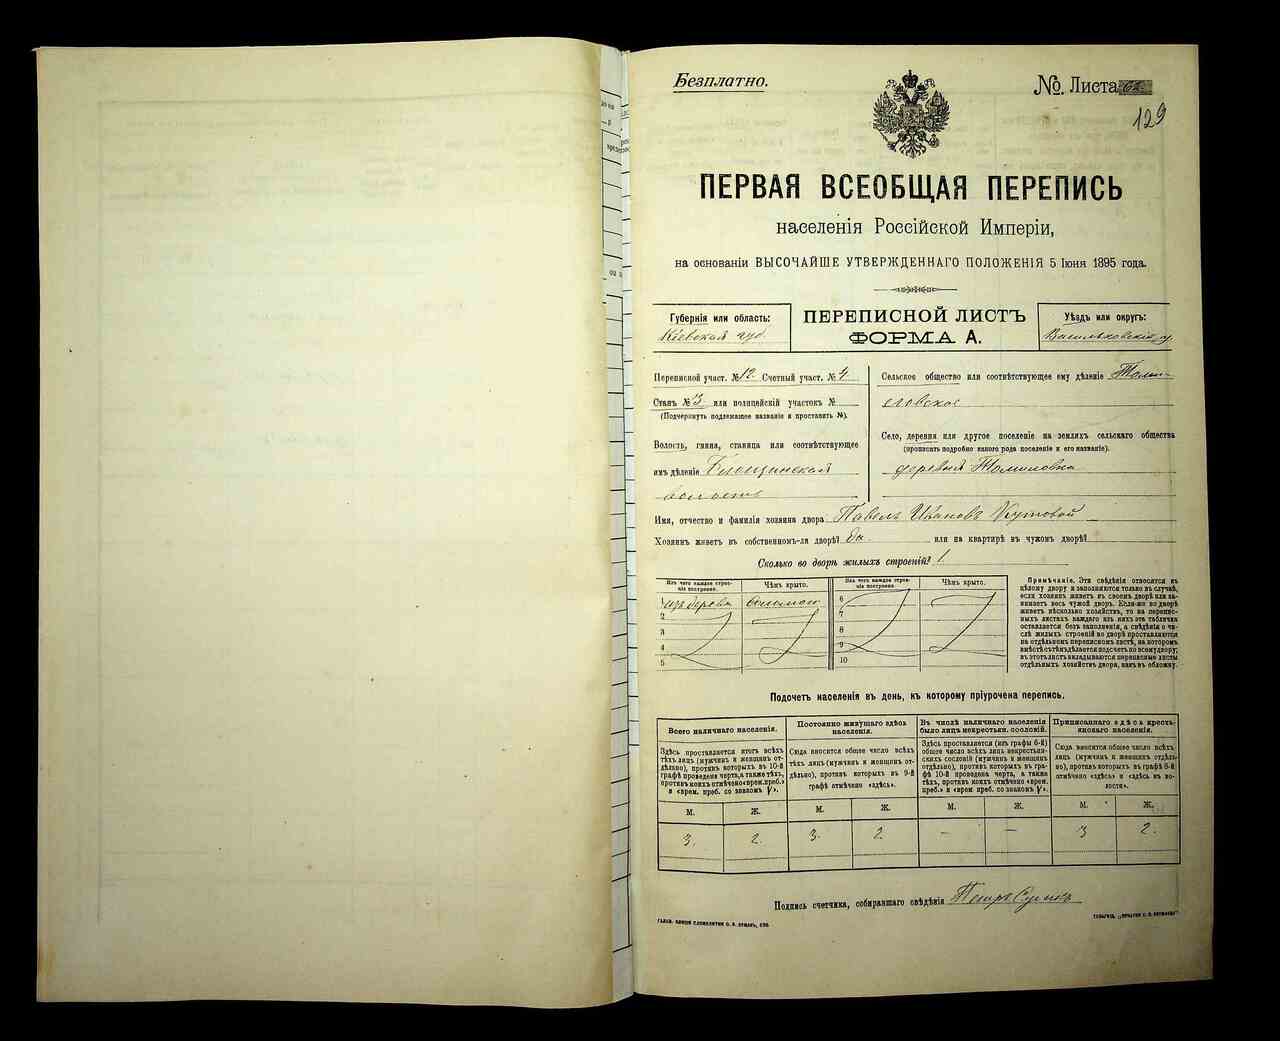 Безплатно.
№ Листа 62
129
ПЕРВАЯ ВСЕОБЩАЯ ПЕРЕПИСЬ
населенія Россійской Имперіи,
на основаніи ВЫСОЧАЙШЕ УТВЕРЖДЕННАГО ПОЛОЖЕНІЯ 5 Іюня 1895 года.
Губернія или область:
Кіевская губ.
ПЕРЕПИСНОЙ ЛИСТЪ
ФОРМА А.
Уѣздъ или округъ:
Васильковскій у.
Переписной участ. № 12 Счетный участ. № 4
Станъ № 3 или полицейскій участокъ №
(Подчеркнуть подлежащее названіе и проставить №).
Волость, гмина, станица или соотвѣтствующее
имъ дѣленіе Блощинская
волость
Сельское общество или соотвѣтствующее ему дѣленіе Томи-
ловское
Село, деревня или другое поселеніе на земляхъ сельскаго общества
(прописать подробно какого рода поселеніе и его названіе).
деревня Томиловка
Имя, отчество и фамилія хозяина двора Павелъ Ивановъ Кутовой
Хозяинъ живетъ въ собственномъ-ли дворѣ? да. или на квартирѣ въ чужомъ дворѣ?
Сколько во дворѣ жилыхъ строеній? 1.
Изъ чего каждое строе-
ніе построено.
Чѣмъ крыто.
Изъ чего каждое строе-
ніе построено.
Чѣмъ крыто.
1 изъ дерева соломою
2
3
4
5
6
7
8
9
10
Примѣчаніе. Эти свѣдѣнія относятся къ
цѣлому двору и заполняются только въ случаѣ,
если хозяинъ живетъ въ своемъ дворѣ или за-
нимаетъ весь чужой дворъ. Если-же во дворѣ
живетъ нѣсколько хозяйствъ, то на перепис-
ныхъ листахъ каждаго изъ нихъ эта табличка
оставляется безъ заполненія, а свѣдѣнія о чи-
слѣ жилыхъ строеній во дворѣ проставляются
на отдѣльномъ переписномъ листѣ, на которомъ
вмѣстѣ съ тѣмъ дѣлается подсчетъ по всему двору;
въ этотъ листъ вкладываются переписные листы
отдѣльныхъ хозяйствъ двора, какъ въ обложку.
Подсчетъ населенія въ день, къ которому пріурочена перепись.
Всего наличнаго населенія.
Здѣсь проставляется итогъ всѣхъ
тѣхъ лицъ (мужчинъ и женщинъ от-
дѣльно), противъ которыхъ въ 10-й
графѣ проведена черта, а также тѣхъ,
противъ коихъ отмѣчено «врем. преб.»
и «врем. преб. со знакомъ V».
Постоянно живущаго здѣсь
населенія.
Сюда вносится общее число всѣхъ
тѣхъ лицъ (мужчинъ и женщинъ от-
дѣльно), противъ которыхъ въ 9-й
графѣ отмѣчено «здѣсь».
Въ числѣ наличнаго населенія
было лицъ некрестьян. сословій.
Здѣсь проставляется (изъ графы 6-й)
общее число всѣхъ лицъ некрестьян-
скихъ сословій (мужчинъ и женщинъ
отдѣльно), противъ которыхъ въ гра-
фѣ 10-й проведена черта, а также
тѣхъ, противъ коихъ отмѣчено «врем.
преб.» и «врем. преб. со знакомъ V».
Приписаннаго здѣсь кресть-
янскаго населенія.
Сюда вносится общее число всѣхъ
лицъ (мужчинъ и женщинъ отдѣль-
но), противъ которыхъ въ графѣ 8-й
отмѣчено «здѣсь» и «здѣсь въ во-
лости».
М. Ж. М. Ж. М. Ж. М. Ж.
3. 2. 3. 2. — — 3 2.
Подпись счетчика, собиравшаго свѣдѣнія Петръ